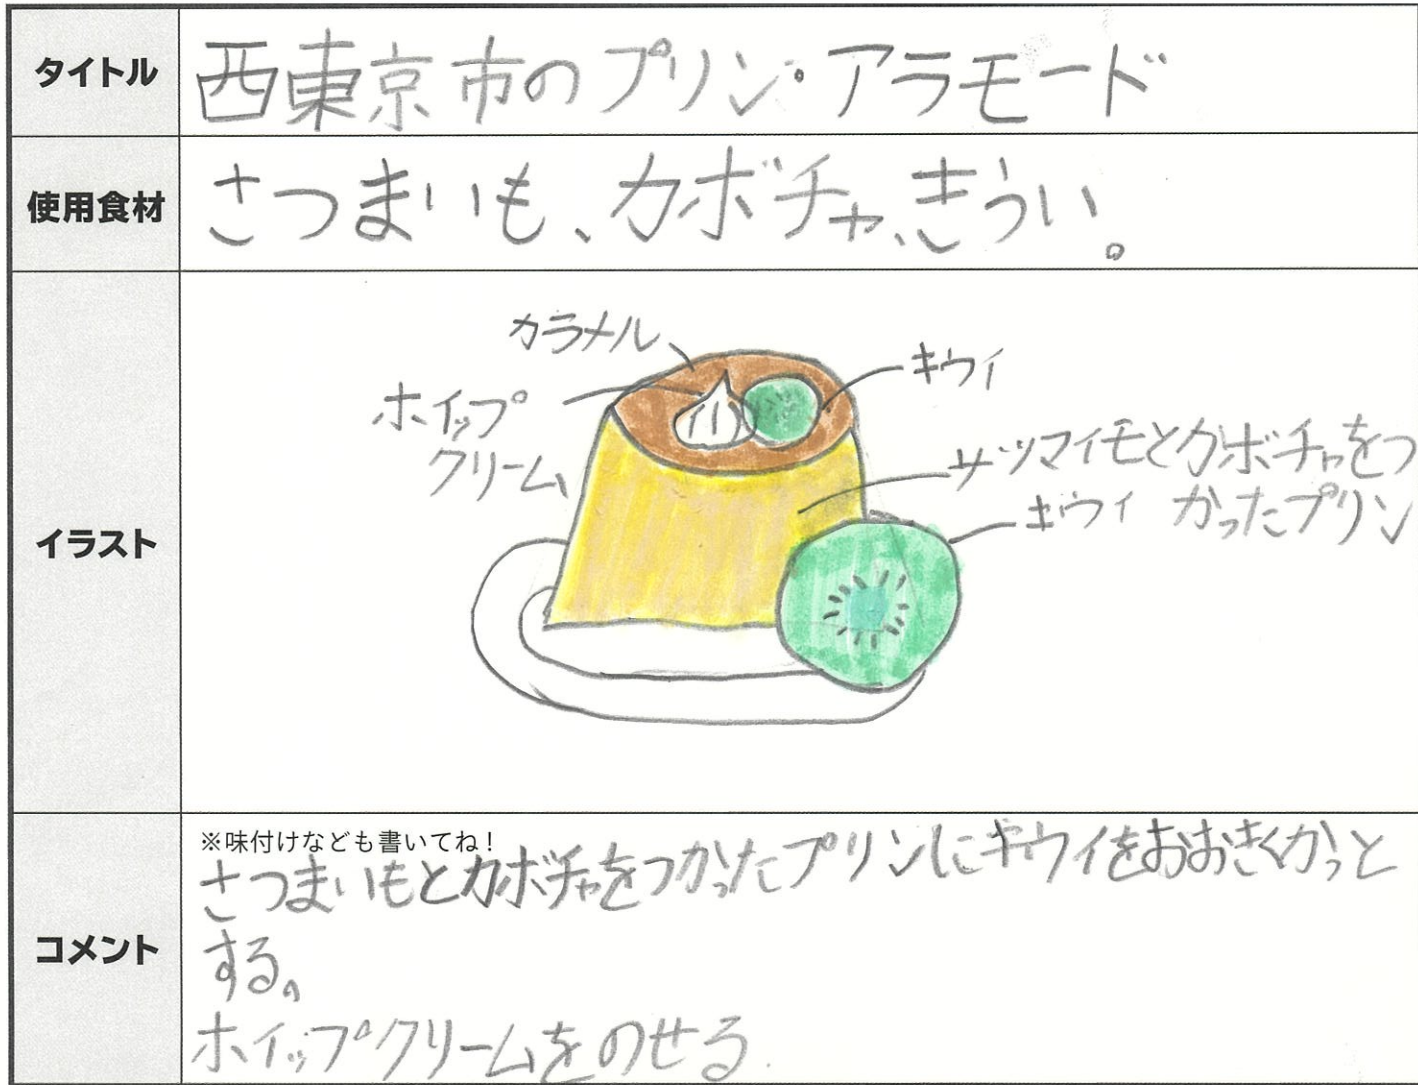 タイトル
西東京市のプリン・アラモード
使用食材
さつまいも、カボチャ、きうい。
イラスト
カラメル
キウイ
ホイップ
クリーム
サツマイモとカボチャをつ
かったプリン
キウイ
コメント
※味付けなども書いてね!
さつまいもとカボチャをつかったプリンにキウイをおおきくかっと
する。
ホイップクリームをのせる